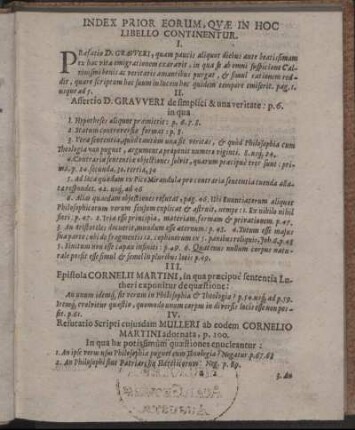 INDEX PRIOR EORUM, QVÆ IN HOC
LIBELLO CONTINENTUR.
I.
PRæfatio D. GRAVVERI, quam paucis aliquot diebus ante beatissimam
ex hac vita emigrationem exaravit, in qua se ab omni suspicione Cal-
vinismi bonis ac veritatis amantibus purgat, & simul rationem red-
dit, quare scriptum hoc suum in lucem hoc quidem tempore emiserit. pag. 1.
usque ad 5.
II.
Assertio D. GRAVVERI de simplici & una veritate: p. 6.
in qua
1. Hypotheses aliquot præmittit: p. 6. 7. 8.
2. Statum controversiæ format: p. 8.
3. Vera sententia, quod tantum una sit veritas, & quod Philosophia cum
Theologia non pugnet, argumentis
4. Contrariæ sententiæ objectiones solvit, quarum præcipuæ tres sunt: pri-
ma, p. secunda, 30. tertia,
5. Ad loca quædam ex Pico Mirandula pro contraria sententia
respondet. 42. usq, ad 46
6. Alias quasdam objectiones refutat, pag. 46. Ubi
Philosophicarum verum sensum explicat & asserit, nempe: 1. Ex nihilo nihil
fieri: p. 47. 2. Tria esse principia, materiam, formam & privationem. p. 47.
3. An Aristoteles docuerit, mundum esse æternum: p. 4. Totum esse majus
sua parte:
5. finitum non esse capax infiniti: p. 6. Quatenus nullum corpus natu-
rale possit esse simul & semel in pluribus locis: p. 49.
III.
Epistola CORNELII MARTINI, in qua præcipuè sententia Lu-
theri exponitur de quæstione:
An unum idemq, sit verum in Philosophia & Theologia? p. 50. usq, ad p. 59.
Itemq, resolvitur quæstio, quomodo unum corpus in diversis locis esse non pos-
sit. p. 61.
IV.
Refutatio Scripti cujusdam MULLERI ab eodem CORNELIO
MARTINI adornata, p. 100.
In qua hæ potissimùm quæstiones enucleantur:
1. An ipse verus usus Philosophiæ pugnet cum Theologia? Negatur p. 67. 68
2. An Philosophi sint Patriarchæ Hæreticorum? Neg. p. 89.
3. An